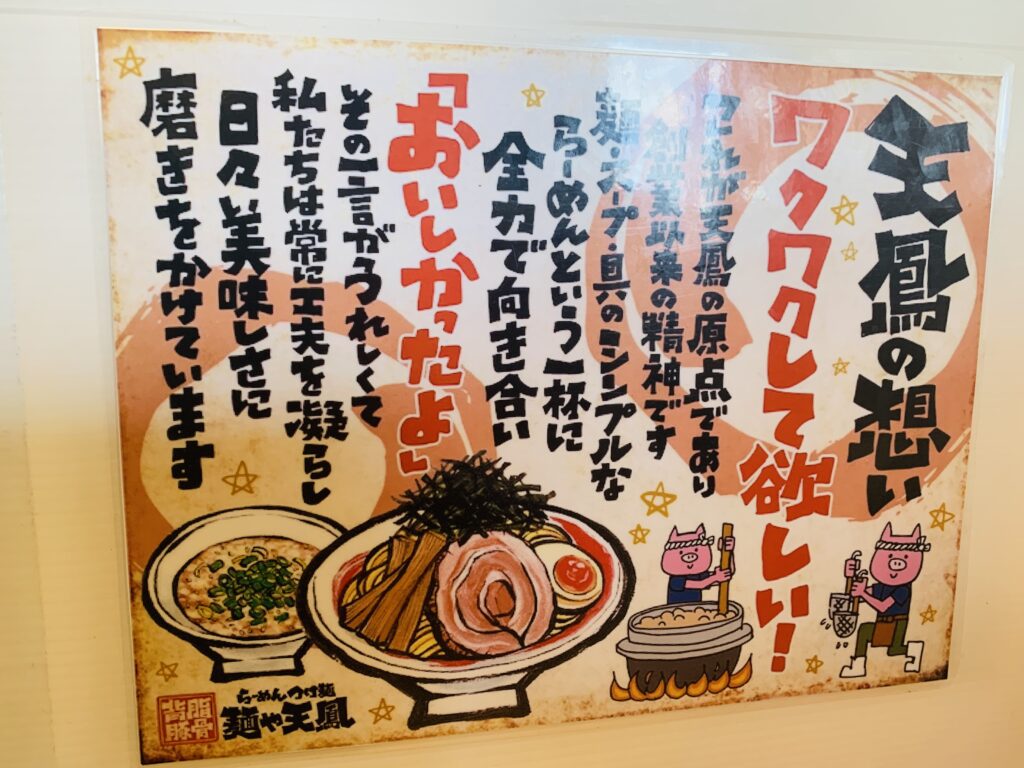 天鳳の想い
ワクワクして欲しい!
これが天鳳の原点であり
創業以来の精神です
麺・スープ・具のシンプルな
らーめんという一杯に
全力で向き合い
「おいしかったよ」
その一言がうれしくて
私たちは常に工夫を凝らし
日々美味しさに
磨きをかけています
らーめん つけ麺
麺や天鳳
背脂豚骨